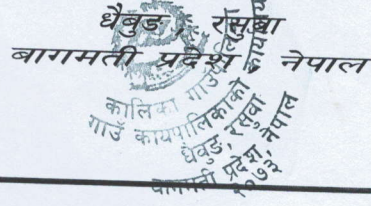 धैवुङ, रसुवा
बागमती प्रदेश, नेपाल
कालिका गाउँपालिका
गाउँ कार्यपालिकाको कार्यालय
धैवुङ, रसुवा
बागमती प्रदेश, नेपाल
२०७३